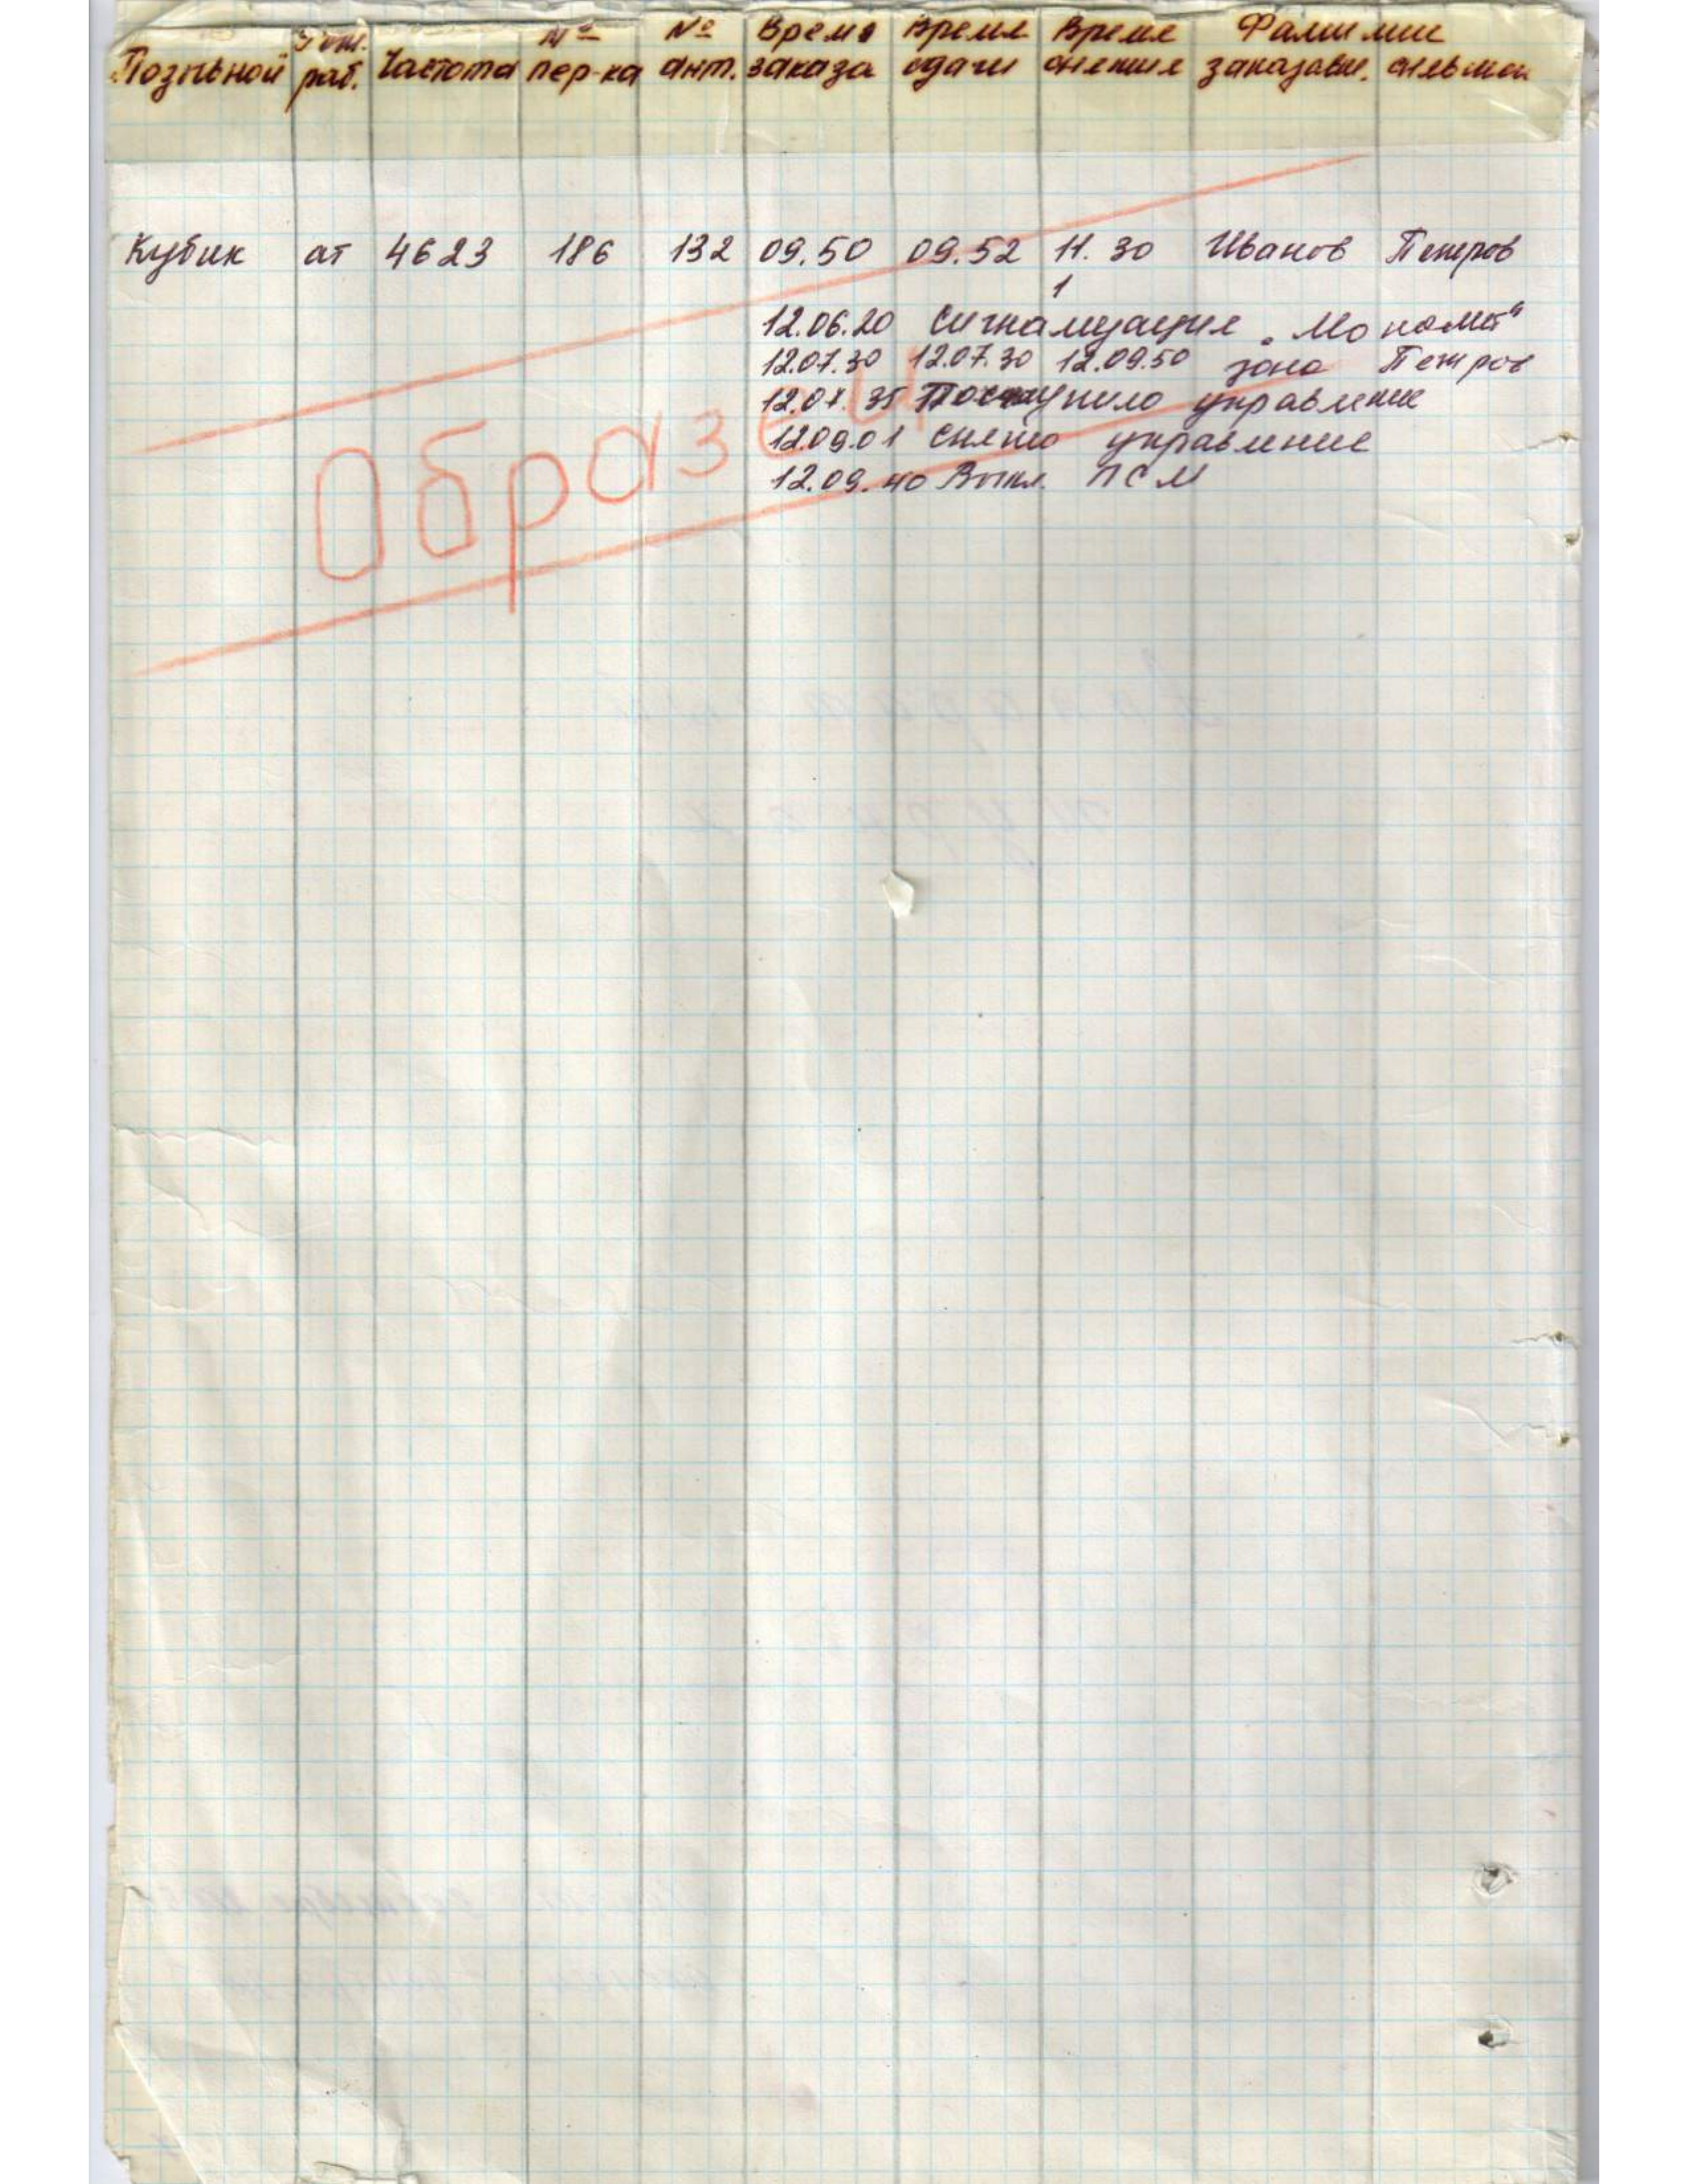 Позывной Реж. раб. Частота № пер-ка № ант. Время заказа Время сдачи Время снятия Фамилии заказавш. снявшей
Кубик ат 4623 186 132 09.50 09.52 11.30 Иванов Петров
1
12.06.20 Сигнализация „Монолит"
12.07.30 12.07.30 12.09.50 зона Петров
12.07.35 Поступило управление
12.09.01 Снято управление
12.09.40 Выкл. ПСМ
Образец